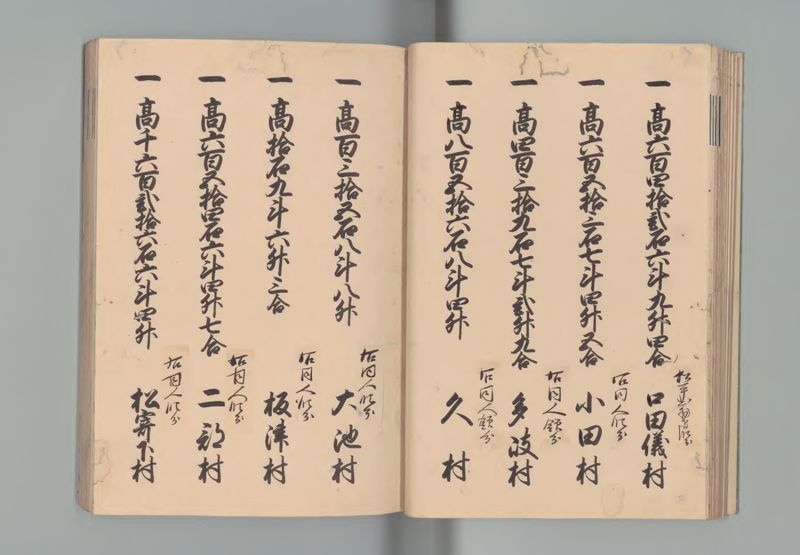 一高六百四拾弐石六斗九升四合
口田儀村
一高六百五拾三石七斗四升五合
右同人領分
小田村
一高四百三拾九石七斗弐升九合
右同人領分
多岐村
一高八百五拾六石八斗四升
右同人領分
久村
一高百三拾五石八斗八升
右同人領分
大池村
一高拾石九斗六升三合
右同人領分
板津村
一高六百五拾四石六斗四升七合
右同人領分
二部村
一高千六百弐拾六石六斗四升
右同人領分
松寄下村